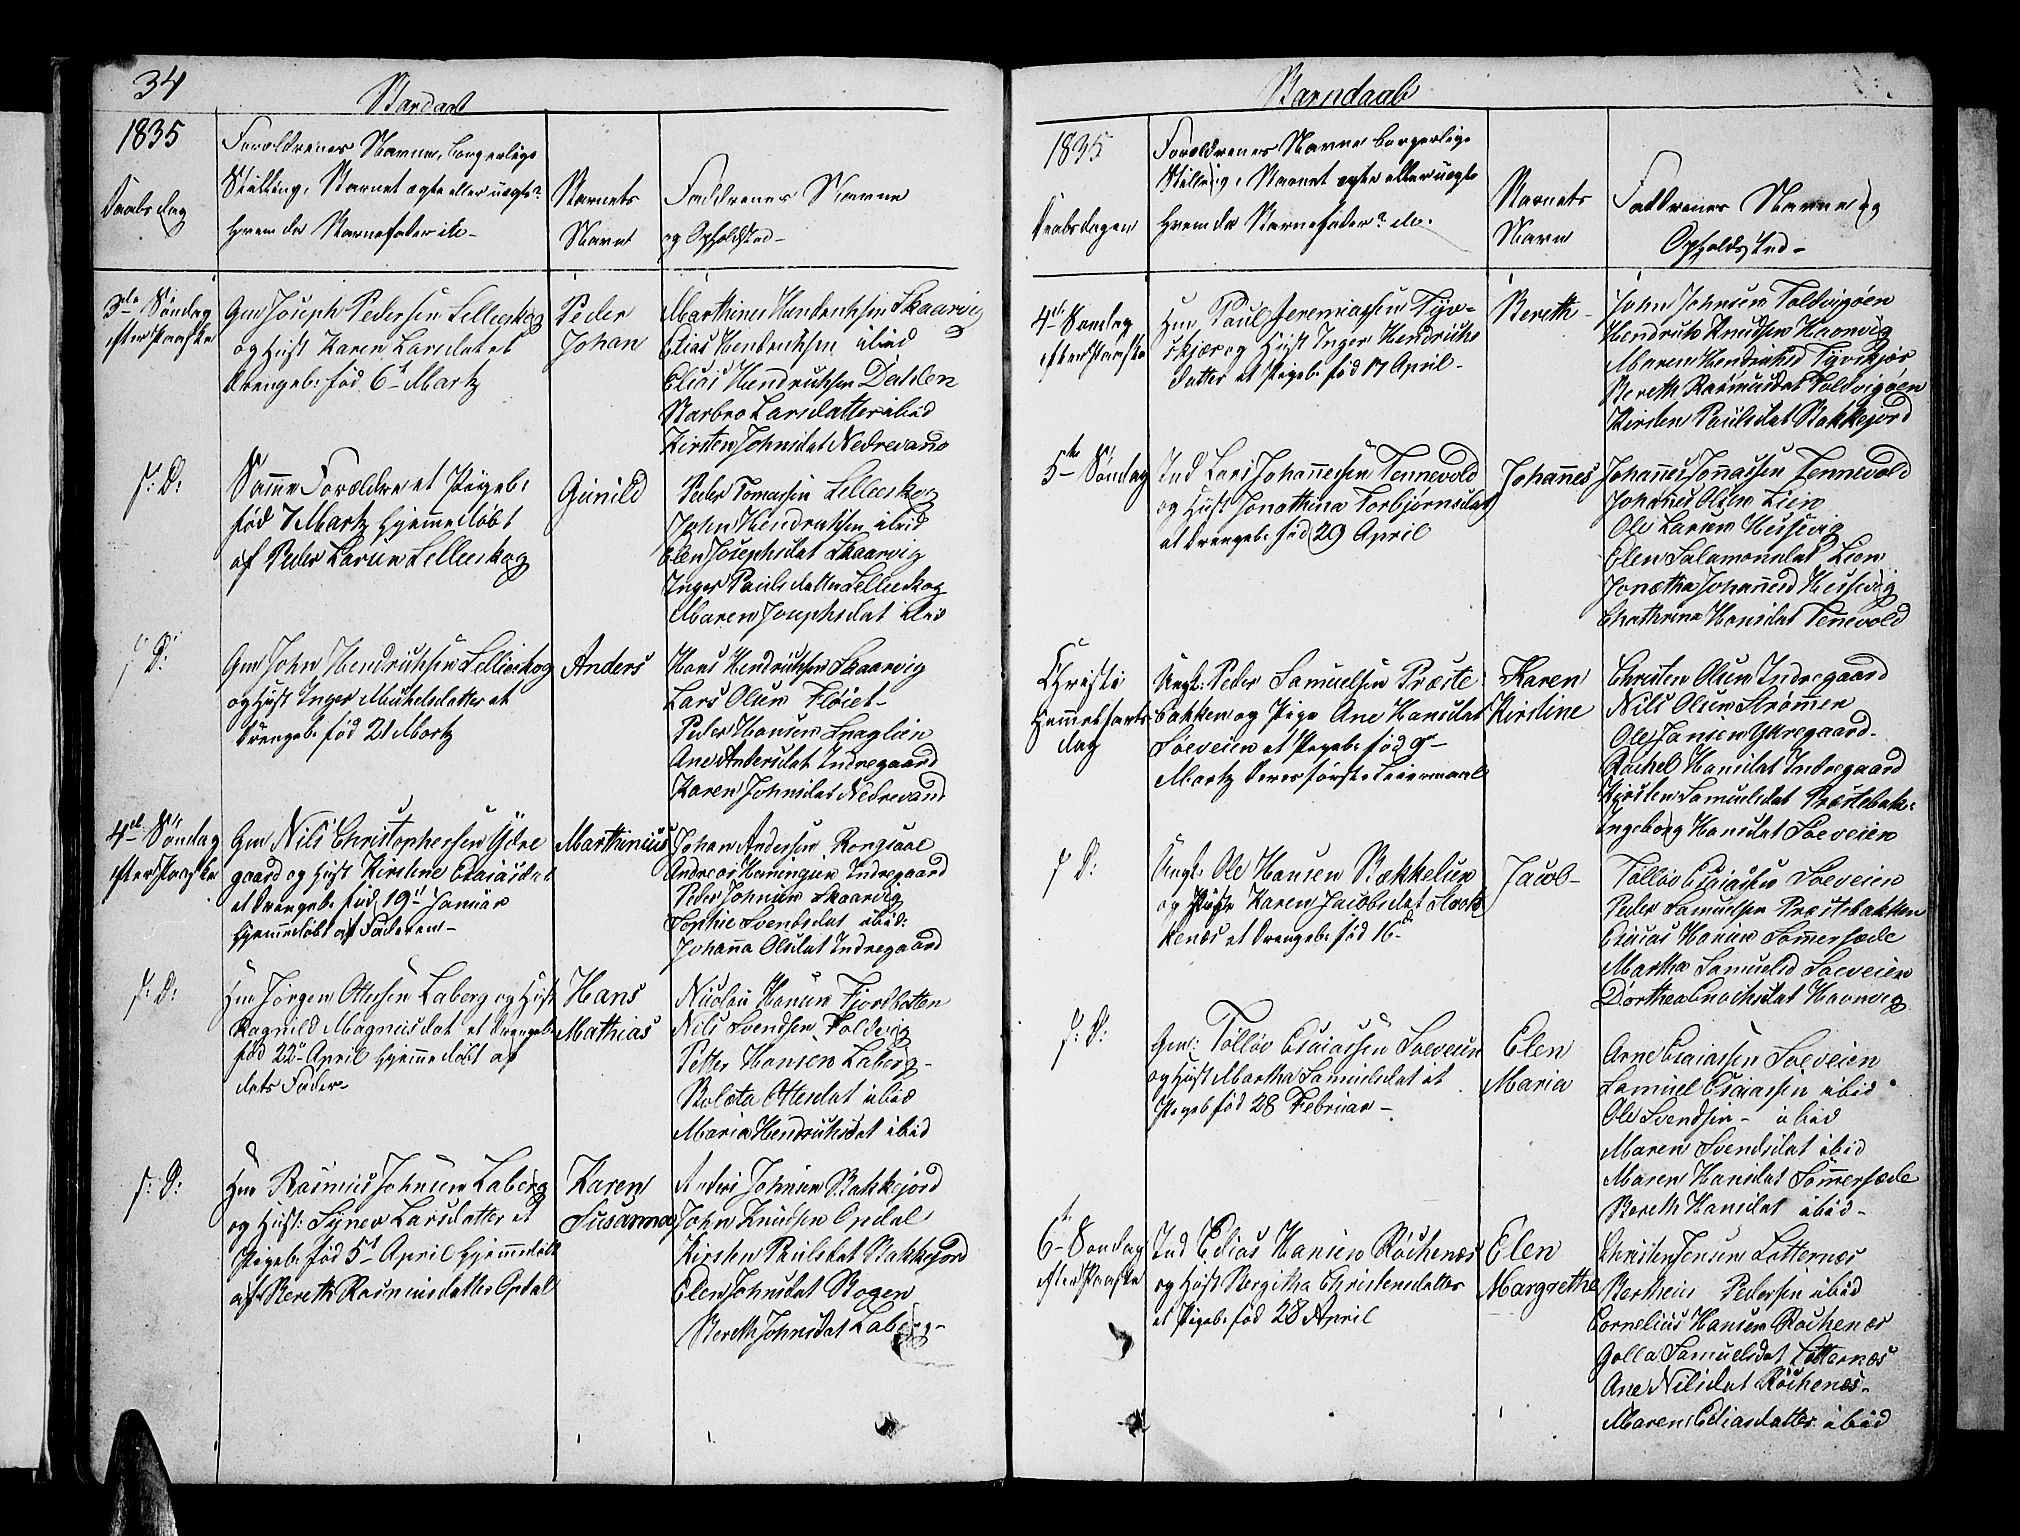 34
Barndaab
1835
Forældrenes Navne, borgerlige
Stilling, Barnet ægte eller uægte?
Hvem da Barnefader etc -
Daabsdag
Barnets
Navn
Faddrenes Navne
og Opholdsted -
3de Søndag
efter Paaske
Gm Joseph Pedersen Lilleskog
og Hust Karen Larsdat et
Drengeb: fød 6t Martz
Peder
Johan
Marthines Hendrichsen Skaarvig
Elias Hendrichsen ibid
Elias Hendrichsen Dahlen
Barbro Larsdatter ibid
Kirsten Johnsdat Nedrevand
s: D:
Samme Forældre et Pigeb:
fød 7 Martz hjemmedøbt
af Peder Larsen Lilleskog
Gunild
Peder Tomassen Lilleskog
John Hendrichsen ibid
Elen Josephsdat Skaarvig
Inger Paulsdatter Lilleskog
Maren Josephsdat ibid
s: D:
Gm John Hendrichsen Lilleskog
og Hust Inger Mikelsdatter et
Drengeb: fød 21 Martz
Anders
Hans Hendrichsen Skaarvig
Lars Olsen Fløiet -
Peder Hansen
Ane Andersdat Indregaard
Karen Johnsdat Nedrevand
4de Søndag
efter Paaske
Gm Nils Christophersen Ydre
gaard og Hust Kirstine Esaiasdat
et Drengeb: fød 19de Januar
hjemmedøbt af Faderen -
Marthinius
Johan Andersen
Andreas Henningsen Indregaard
Peder Johnsen Skaarvig
Sophie Svendsdat ibid:
Johanna Olsdat Indregaard
s: D:
Hm Jørgen Ottesen Laberg og Hust
Ragnild Magnusdat et Drengeb:
fød 22de April hjemmedøbt af
dets Fader
Hans
Mathias
Nicolai Hansen Fjordbotten
Nils Svendsen Foldvig
Petter Hansen Laberg -
Ottesdat ibid
Maria Hendrichsdat ibid
s: D:
Hm Rasmus Johnsen Laberg
og Hust: Synev Larsdatter et
Pigeb: fød 5t April hjemmedøbt
af Bereth Rasmusdatter Opdal
Karen
Susanna
Anders Johnsen Bakkejord
John Knudsen Opdal
Kirsten Paulsdat Bakkejord
Elen Johnsdat Bogen
Bereth Johnsdat Laberg -
Barndaab
1835
Daabsdagen
Forældrenes Navne borgerlige
Stilling, Barnet ægte eller uægte
Hvem da Barnefader? etc.
Barnets
Navn
Faddrenes Navne og
Opholdsted -
4de Søndag
efter Paaske
Hm Paul Jeremiassen Fyr-
skjær og Hust Inger Hendrichs
datter et Pigeb: fød 17 April -
Bereth -
John Johnsen Foldvigøen
Hendrich Knudsen Haanvig
Maren Hendrichsd Fyrskjær
Bereth Rasmusdat Foldvigøen
Kirsten Paulsdat Bakkejord
5te Søndag
Ind Lars Johannesen Tennevold
og Hust Jonathina Torbjørnsdat
et Drengeb: fød 29 April
Johannes
Johannes Jonnassen Tennevold
Johannes Olsen Lien
Ole Larsen Hessevig
Elen Salamonsdat Lien
Jonetha Johannesd Hessevig
Chathrina Hansdat Tenevold
Christi
Himmelfarts
dag
Ungk: Peder Samuelsen Præste
bakken og Pige Ane Hansdat
Soeveien et Pigeb: fød 9de
Martz deres første Leiermaal
Karen
Kirstine
Christen Olsen Indregaard
Nils Olsen Strømmen
Ole Jansen Ytregaard -
Rachel Hansdat Indregaard
Kirsten Samuelsdat Præstebak:
Ingeborg Hansdat Soeveien
s D:
Ungk: Ole Hansen Bækkelien
og Pige Karen Jacobsdat
kenæs et Drengeb: fød 16de
Jacob -
Tolløv Esaiassen Soeveien
Peder Samuelsen Præstebakken
Esaias Hansen Sommersæde
Martha Samuelsd Soeveien
Dorthea Enochsdat Haanvig
s: D:
Gm: Tolløv Esaiassen Soeveien
og Hust Martha Samuelsdat et
Pigeb: fød 28 Februar -
Elen
Maria
Arne Esaiassen Soeveien
Samuel Esaiassen ibid
Ole Svendsen - ibid
Maren Svendsdat ibid
Maren Hansdat Sommersæde
Bereth Hansdat ibid -
6te Søndag
efter Paaske
Ind Elias Hansen Røchenæs
og Hust Bergitha Christensdatter
et Pigeb: fød 28 April
Elen
Margrethe
Christen Jensen Lotternæs
Bertheus Pedersen ibid
Cornelius Hansen Røchenæs
Golla Samuelsdat Lotternæs
Ane Nilsdat Røchenæs -
Maren Eliasdatter ibid